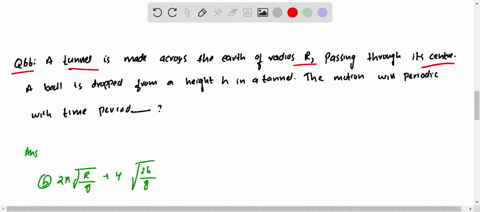 Q66: A tunnel is made across the earth of radius R, passing through its centre.
A ball is dropped from a height h in a tunnel. The motion will periodic
with time period___ ?
Ans
(b) 2π√(R/g) + 4 √(2h/g)